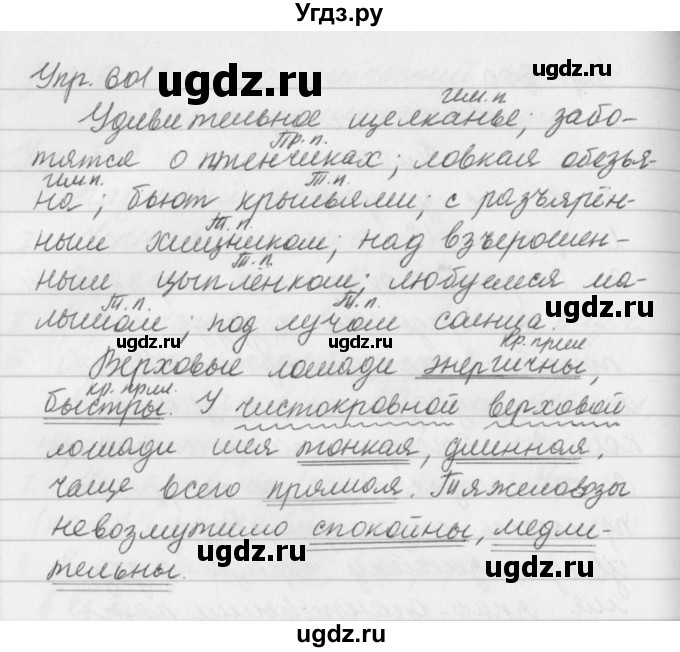 Угдз.ру
Упр. 601
ugdz.ru
ugdz.ru
им.п
Удивительное щелканье; забо-
Пр.п.
тятся о птенчиках; ловкая обезья-
им п.
Т.п.
на; бьют крыльями; с разъярён-
Т.п.
ным хищником; над взъерошен-
Т.п.
ugdz.ru
ным цыплёнком; любуемся ма-
Т.п.
Т.п.
лышом; под лучом солнца.
ugdz.ru
кр. прил
Верховые лошади энергичны,
кр. прил.
быстры. У чистокровной верховой
лошади шея тонкая, длинная,
чаще всего прямая. Тяжеловозы
невозмутимо спокойны, медли-
ugdz.ru
ugdz.ru
тельны.
ugdz.ru